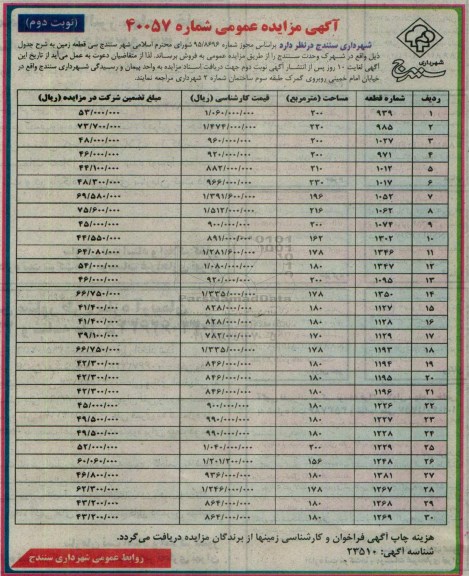 (نوبت دوم)
آگهی مزایده عمومی شماره ۴۰۰۵۷
شهرداری سنندج
شهرداری سنندج درنظر دارد براساس مجوز شماره ۹۵/۸۶۹۶ شورای محترم اسلامی شهر سنندج سی قطعه زمین به شرح جدول
ذیل واقع در شهرک وحدت سنندج را از طریق مزایده عمومی به فروش برساند. لذا از متقاضیان دعوت به عمل می‌آید از تاریخ این
آگهی لغایت ۱۰ روز پس از انتشار آگهی نوبت دوم جهت دریافت اسناد مزایده به واحد پیمان و رسیدگی شهرداری سنندج واقع در
خیابان امام خمینی روبروی گمرک طبقه سوم ساختمان شماره ۲ شهرداری مراجعه نمایند.
ردیف شماره قطعه مساحت (مترمربع) قیمت کارشناسی (ریال) مبلغ تضمین شرکت در مزایده (ریال)
۱ ۹۳۹ ۲۰۰ ۱/۰۶۰/۰۰۰/۰۰۰ ۵۳/۰۰۰/۰۰۰
۲ ۹۸۵ ۲۲۰ ۱/۴۷۴/۰۰۰/۰۰۰ ۷۳/۷۰۰/۰۰۰
۳ ۱۰۲۷ ۲۰۰ ۹۶۰/۰۰۰/۰۰۰ ۴۸/۰۰۰/۰۰۰
۴ ۹۷۱ ۲۰۰ ۹۲۰/۰۰۰/۰۰۰ ۴۶/۰۰۰/۰۰۰
۵ ۱۰۱۴ ۲۱۰ ۸۸۲/۰۰۰/۰۰۰ ۴۴/۱۰۰/۰۰۰
۶ ۱۰۱۷ ۲۳۰ ۹۶۶/۰۰۰/۰۰۰ ۴۸/۳۰۰/۰۰۰
۷ ۱۰۵۲ ۱۹۶ ۱/۳۹۱/۶۰۰/۰۰۰ ۶۹/۵۸۰/۰۰۰
۸ ۱۰۶۲ ۲۱۶ ۱/۵۱۲/۰۰۰/۰۰۰ ۷۵/۶۰۰/۰۰۰
۹ ۱۰۷۴ ۲۰۰ ۹۰۰/۰۰۰/۰۰۰ ۴۵/۰۰۰/۰۰۰
۱۰ ۱۳۰۲ ۱۶۲ ۸۹۱/۰۰۰/۰۰۰ ۴۴/۵۵۰/۰۰۰
۱۱ ۱۳۴۶ ۱۷۸ ۱/۲۸۱/۶۰۰/۰۰۰ ۶۴/۰۸۰/۰۰۰
۱۲ ۱۳۴۷ ۱۸۰ ۱/۰۸۰/۰۰۰/۰۰۰ ۵۴/۰۰۰/۰۰۰
۱۳ ۱۰۹۵ ۲۰۰ ۹۲۰/۰۰۰/۰۰۰ ۴۶/۰۰۰/۰۰۰
۱۴ ۱۳۵۰ ۱۷۸ ۱/۳۳۵/۰۰۰/۰۰۰ ۶۶/۷۵۰/۰۰۰
۱۵ ۱۱۲۷ ۱۸۰ ۸۲۸/۰۰۰/۰۰۰ ۴۱/۴۰۰/۰۰۰
۱۶ ۱۱۲۸ ۱۸۰ ۸۲۸/۰۰۰/۰۰۰ ۴۱/۴۰۰/۰۰۰
۱۷ ۱۱۲۹ ۱۷۰ ۷۸۲/۰۰۰/۰۰۰ ۳۹/۱۰۰/۰۰۰
۱۸ ۱۱۹۳ ۱۷۸ ۱/۳۳۵/۰۰۰/۰۰۰ ۶۶/۷۵۰/۰۰۰
۱۹ ۱۱۹۴ ۱۸۰ ۸۴۶/۰۰۰/۰۰۰ ۴۲/۳۰۰/۰۰۰
۲۰ ۱۱۹۵ ۱۸۰ ۸۴۶/۰۰۰/۰۰۰ ۴۲/۳۰۰/۰۰۰
۲۱ ۱۱۹۶ ۱۸۰ ۸۴۶/۰۰۰/۰۰۰ ۴۲/۳۰۰/۰۰۰
۲۲ ۱۲۲۶ ۱۸۰ ۹۰۰/۰۰۰/۰۰۰ ۴۵/۰۰۰/۰۰۰
۲۳ ۱۲۲۷ ۱۸۰ ۹۹۰/۰۰۰/۰۰۰ ۴۹/۵۰۰/۰۰۰
۲۴ ۱۲۲۸ ۱۸۰ ۹۹۰/۰۰۰/۰۰۰ ۴۹/۵۰۰/۰۰۰
۲۵ ۱۲۲۹ ۲۰۰ ۱/۰۴۰/۰۰۰/۰۰۰ ۵۲/۰۰۰/۰۰۰
۲۶ ۱۲۴۸ ۱۵۶ ۱/۲۰۱/۲۰۰/۰۰۰ ۶۰/۰۶۰/۰۰۰
۲۷ ۱۳۸۱ ۱۸۰ ۹۳۶/۰۰۰/۰۰۰ ۴۶/۸۰۰/۰۰۰
۲۸ ۱۲۶۷ ۱۷۸ ۱/۲۴۶/۰۰۰/۰۰۰ ۶۲/۳۰۰/۰۰۰
۲۹ ۱۲۶۸ ۱۸۰ ۸۶۴/۰۰۰/۰۰۰ ۴۳/۲۰۰/۰۰۰
۳۰ ۱۲۶۹ ۱۸۰ ۸۶۴/۰۰۰/۰۰۰ ۴۳/۲۰۰/۰۰۰
هزینه چاپ آگهی فراخوان و کارشناسی زمینها از برندگان مزایده دریافت می‌گردد.
شناسه آگهی: ۲۳۵۱۰
روابط عمومی شهرداری سنندج